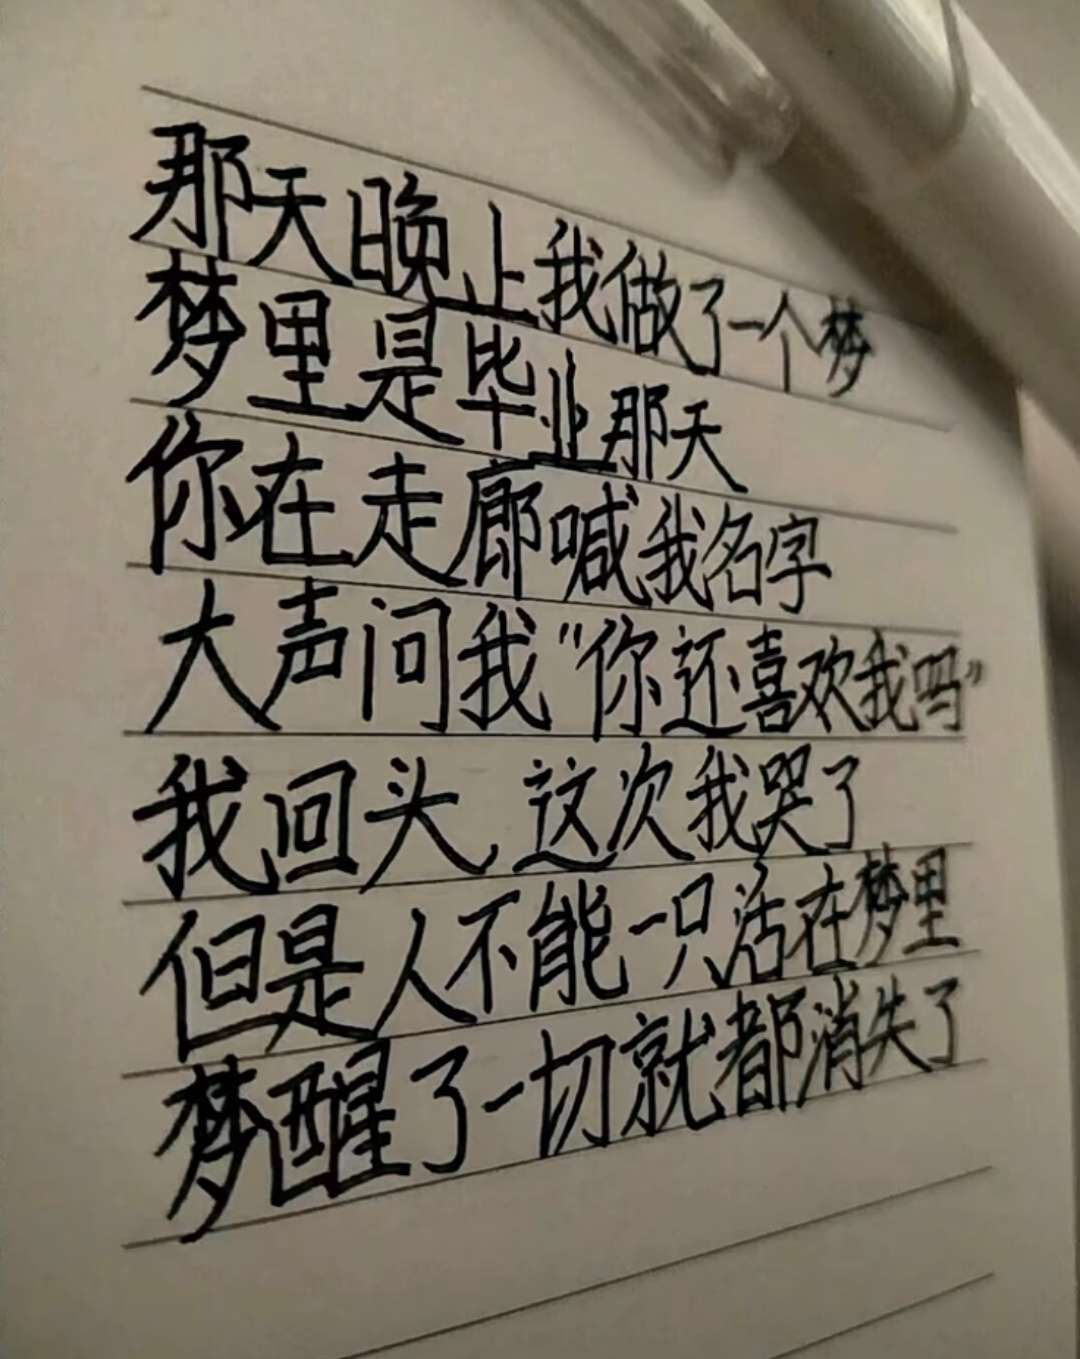 那天晚上我做了一个梦
梦里是毕业那天
你在走廊喊我名字
大声问我"你还喜欢我吗"
我回头,这次我哭了
但是人不能一只活在梦里
梦醒了一切就都消失了